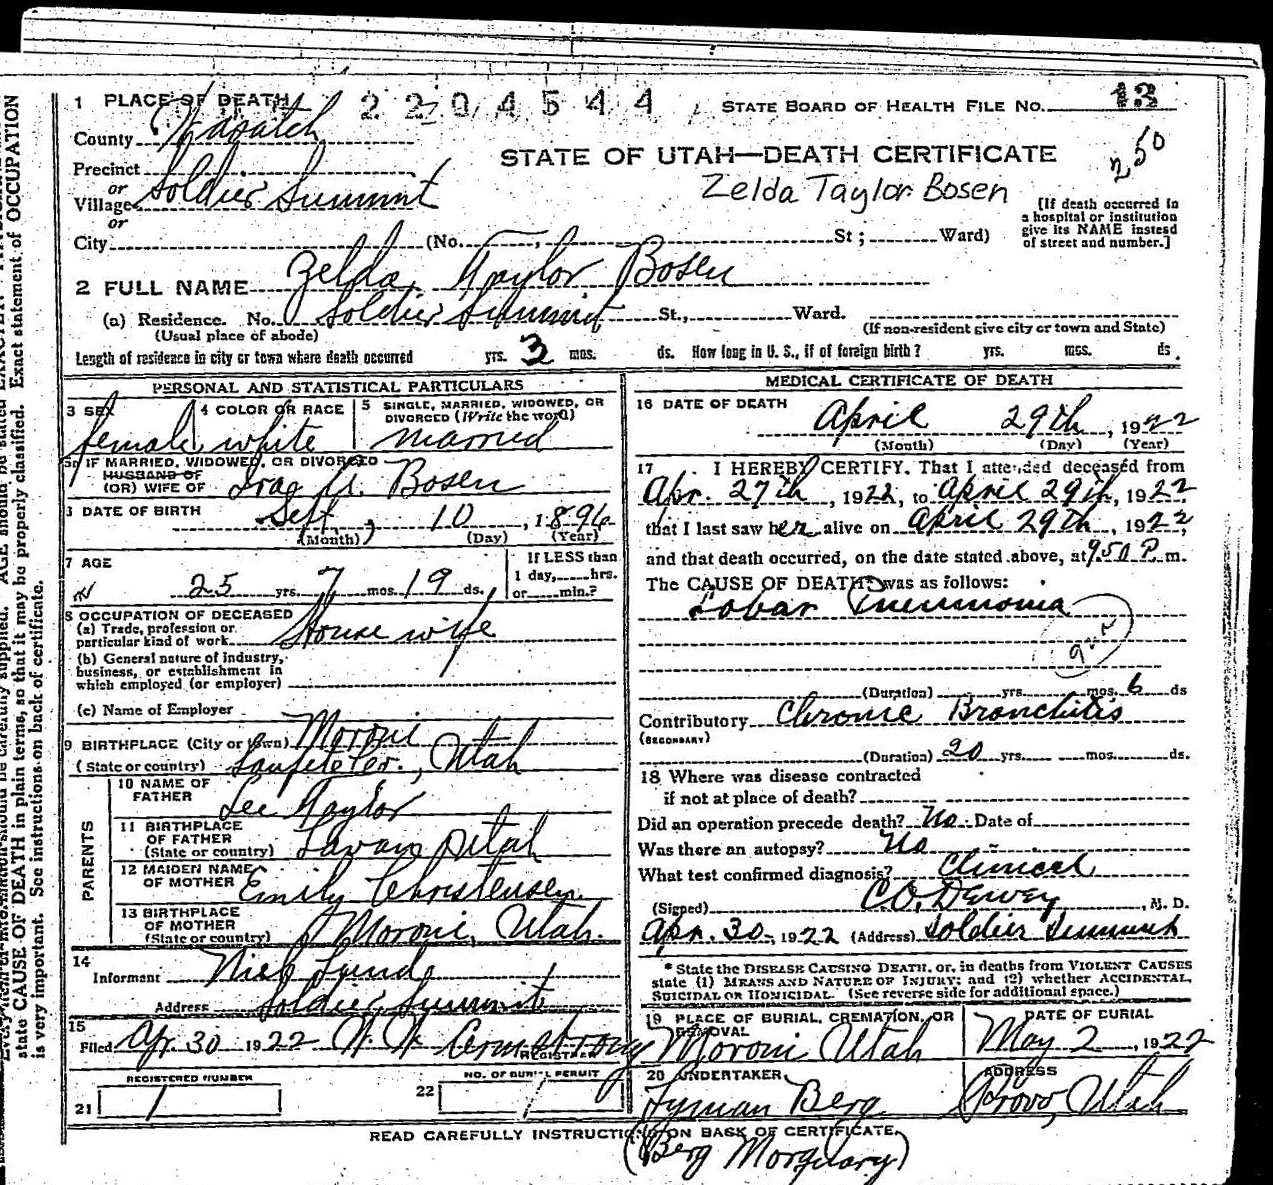 1 PLACE OF DEATH 2204544 STATE BOARD OF HEALTH FILE NO. 13
County Wasatch
STATE OF UTAH—DEATH CERTIFICATE 2 50
Precinct
or
Village Soldier Summit
or
Zelda Taylor Bosen
[If death occurred in
a hospital or institution
give its NAME instead
of street and number.]
City (No. St; Ward)
2 FULL NAME Zelda Taylor Bosen
(a) Residence. No. Soldier Summit St., Ward.
(Usual place of abode) (If non-resident give city or town and State)
Length of residence in city or town where death occurred yrs. 3 mos. ds. How long in U. S., if of foreign birth? yrs. mos. ds.
PERSONAL AND STATISTICAL PARTICULARS
3 SEX
female
4 COLOR OR RACE
white
5 SINGLE, MARRIED, WIDOWED, OR
DIVORCED (Write the word)
married
5a IF MARRIED, WIDOWED, OR DIVORCED
HUSBAND OF
(OR) WIFE OF Bosen
DATE OF BIRTH Sept, 10, 1896
(Month) (Day) (Year)
7 AGE
25 yrs. 7 mos. 19 ds.
If LESS than
1 day, hrs.
or min.?
8 OCCUPATION OF DECEASED
(a) Trade, profession or
particular kind of work House wife
(b) General nature of industry,
business, or establishment in
which employed (or employer)
(c) Name of Employer
9 BIRTHPLACE (City or town) Moroni
(State or country) Sanpete Co., Utah
PARENTS
10 NAME OF
FATHER Lee Taylor
11 BIRTHPLACE
OF FATHER
(State or country) Levan Utah
12 MAIDEN NAME
OF MOTHER Emily Christensen
13 BIRTHPLACE
OF MOTHER
(State or country) Moroni, Utah.
14
Informant
Address Soldier Summit
15
Filed Apr. 30 1922 Armstrong
REGISTRAR
REGISTERED NUMBER
21 1
NO. OF BURIAL PERMIT
22 1
MEDICAL CERTIFICATE OF DEATH
16 DATE OF DEATH
April 29th, 1922
(Month) (Day) (Year)
17 I HEREBY CERTIFY, That I attended deceased from
Apr. 27th, 1922, to April 29th, 1922
that I last saw her alive on April 29th, 1922,
and that death occurred, on the date stated above, at 9:50 P. m.
The CAUSE OF DEATH* was as follows:
Lobar Pneumonia
(Duration) yrs. mos. 6 ds
Contributory Chronic Bronchitis
(SECONDARY)
(Duration) 20 yrs. mos. ds.
18 Where was disease contracted
if not at place of death?
Did an operation precede death? No Date of
Was there an autopsy? No
What test confirmed diagnosis? Clinical
(Signed) C.O. Dewey, M. D.
Apr. 30, 1922 (Address) Soldier Summit
* State the DISEASE CAUSING DEATH, or, in deaths from VIOLENT CAUSES
state (1) MEANS AND NATURE OF INJURY; and (2) whether ACCIDENTAL,
SUICIDAL OR HOMICIDAL. (See reverse side for additional space.)
19 PLACE OF BURIAL, CREMATION, OR
REMOVAL
Moroni Utah
DATE OF BURIAL
May 2, 1922
20 UNDERTAKER
Berg
ADDRESS
Provo, Utah
READ CAREFULLY INSTRUCTIONS ON BACK OF CERTIFICATE.
(Berg Morquary)
state CAUSE OF DEATH in plain terms, so that it may be properly classified. Exact statement of OCCUPATION
is very important. See instructions on back of certificate.